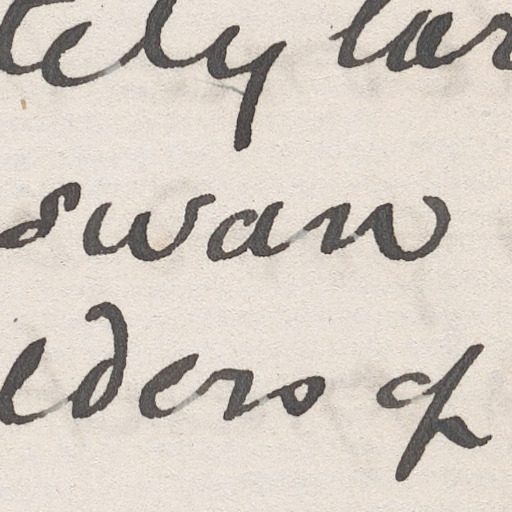 tely lar
swan
elders of